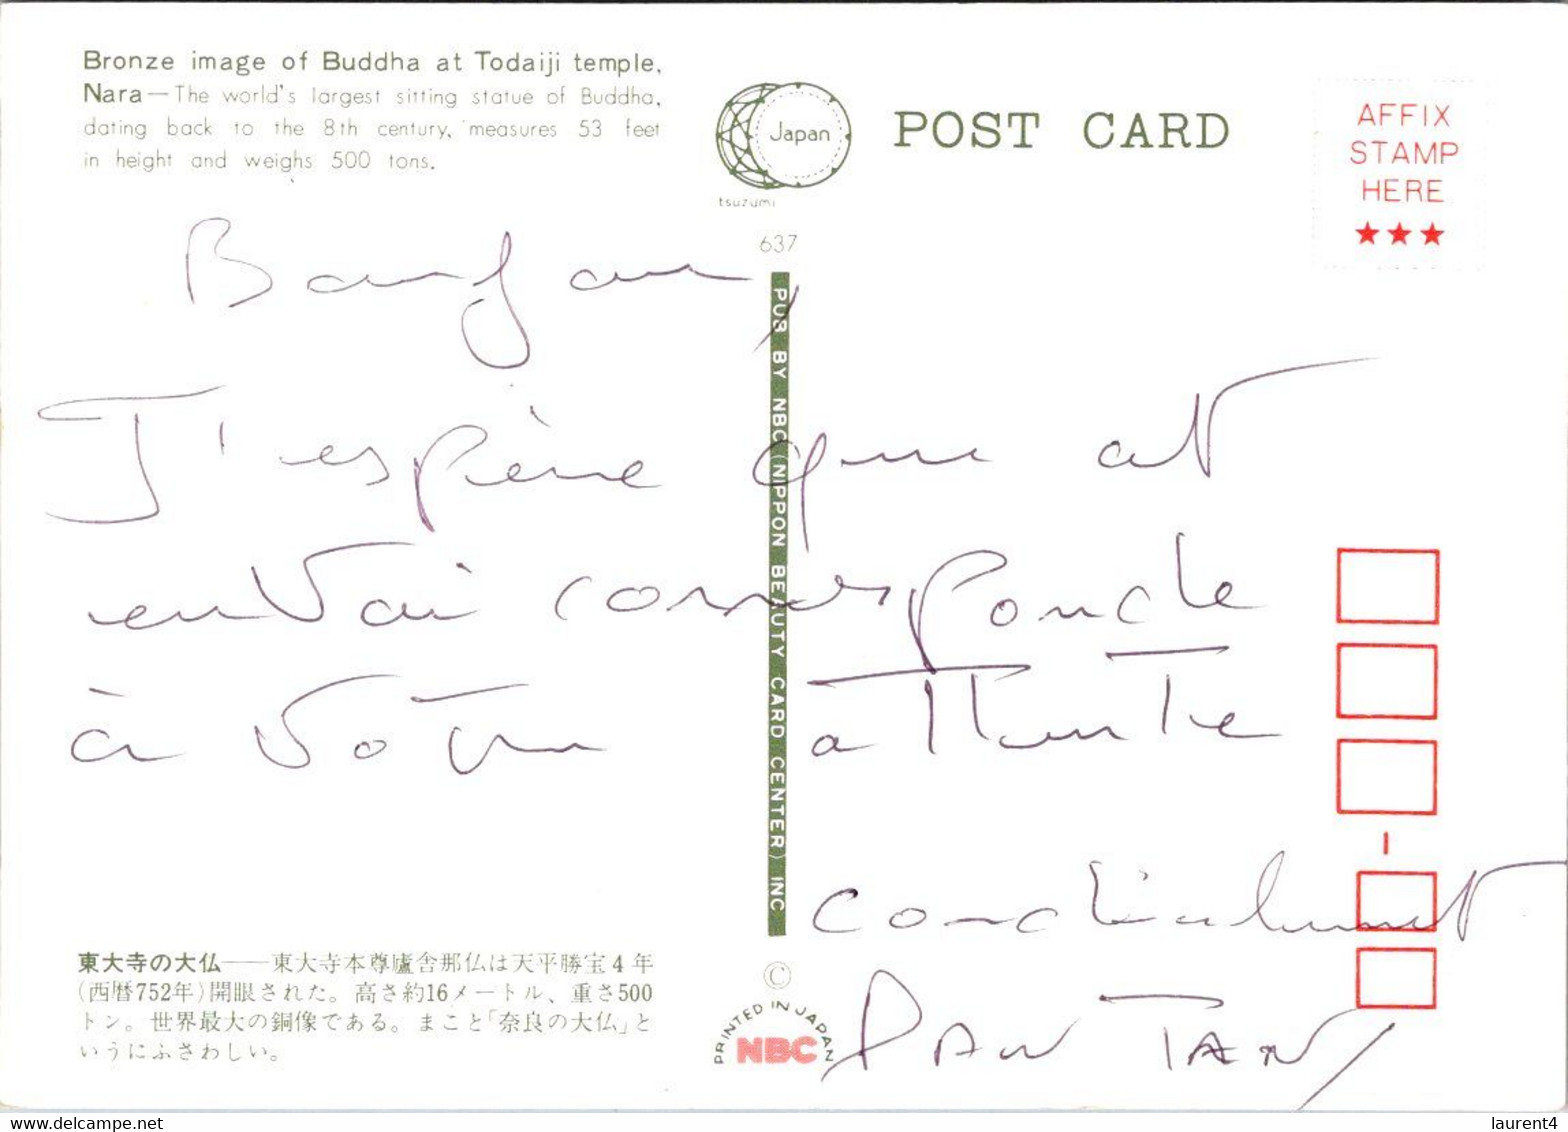 Bronze image of Buddha at Todaiji temple,
Nara—The world's largest sitting statue of Buddha,
dating back to the 8th century, measures 53 feet
in height and weighs 500 tons.
Japan
tsuzumi
POST CARD
AFFIX
STAMP
HERE
★★★
637
PUB BY NBC (NIPPON BEAUTY CARD CENTER) INC
Bonjour,
J'espère que cet
envoi corresponde
à votre attente
Cordialement
東大寺の大仏——東大寺本尊廬舎那仏は天平勝宝4年
(西暦752年)開眼された。高さ約16メートル、重さ500
トン。世界最大の銅像である。まこと「奈良の大仏」と
いうにふさわしい。
©
PRINTED IN JAPAN
NBC
laurent4